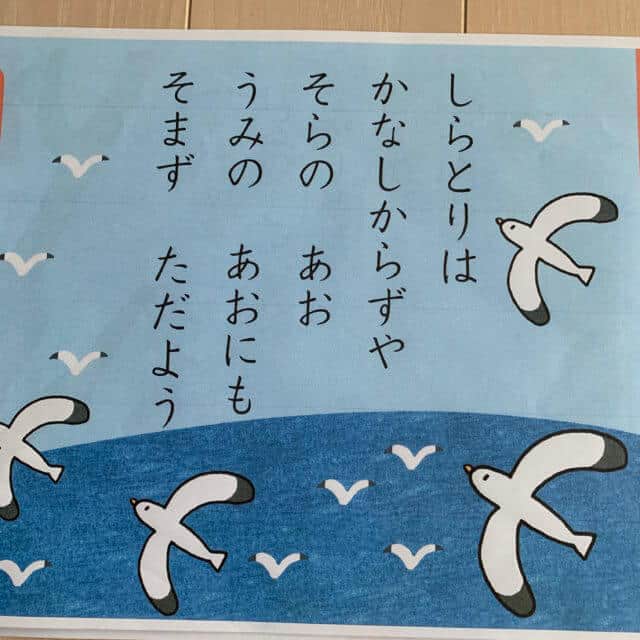 しらとりは
かなしからずや
そらの　あお
うみの　あおにも
そまず　ただよう